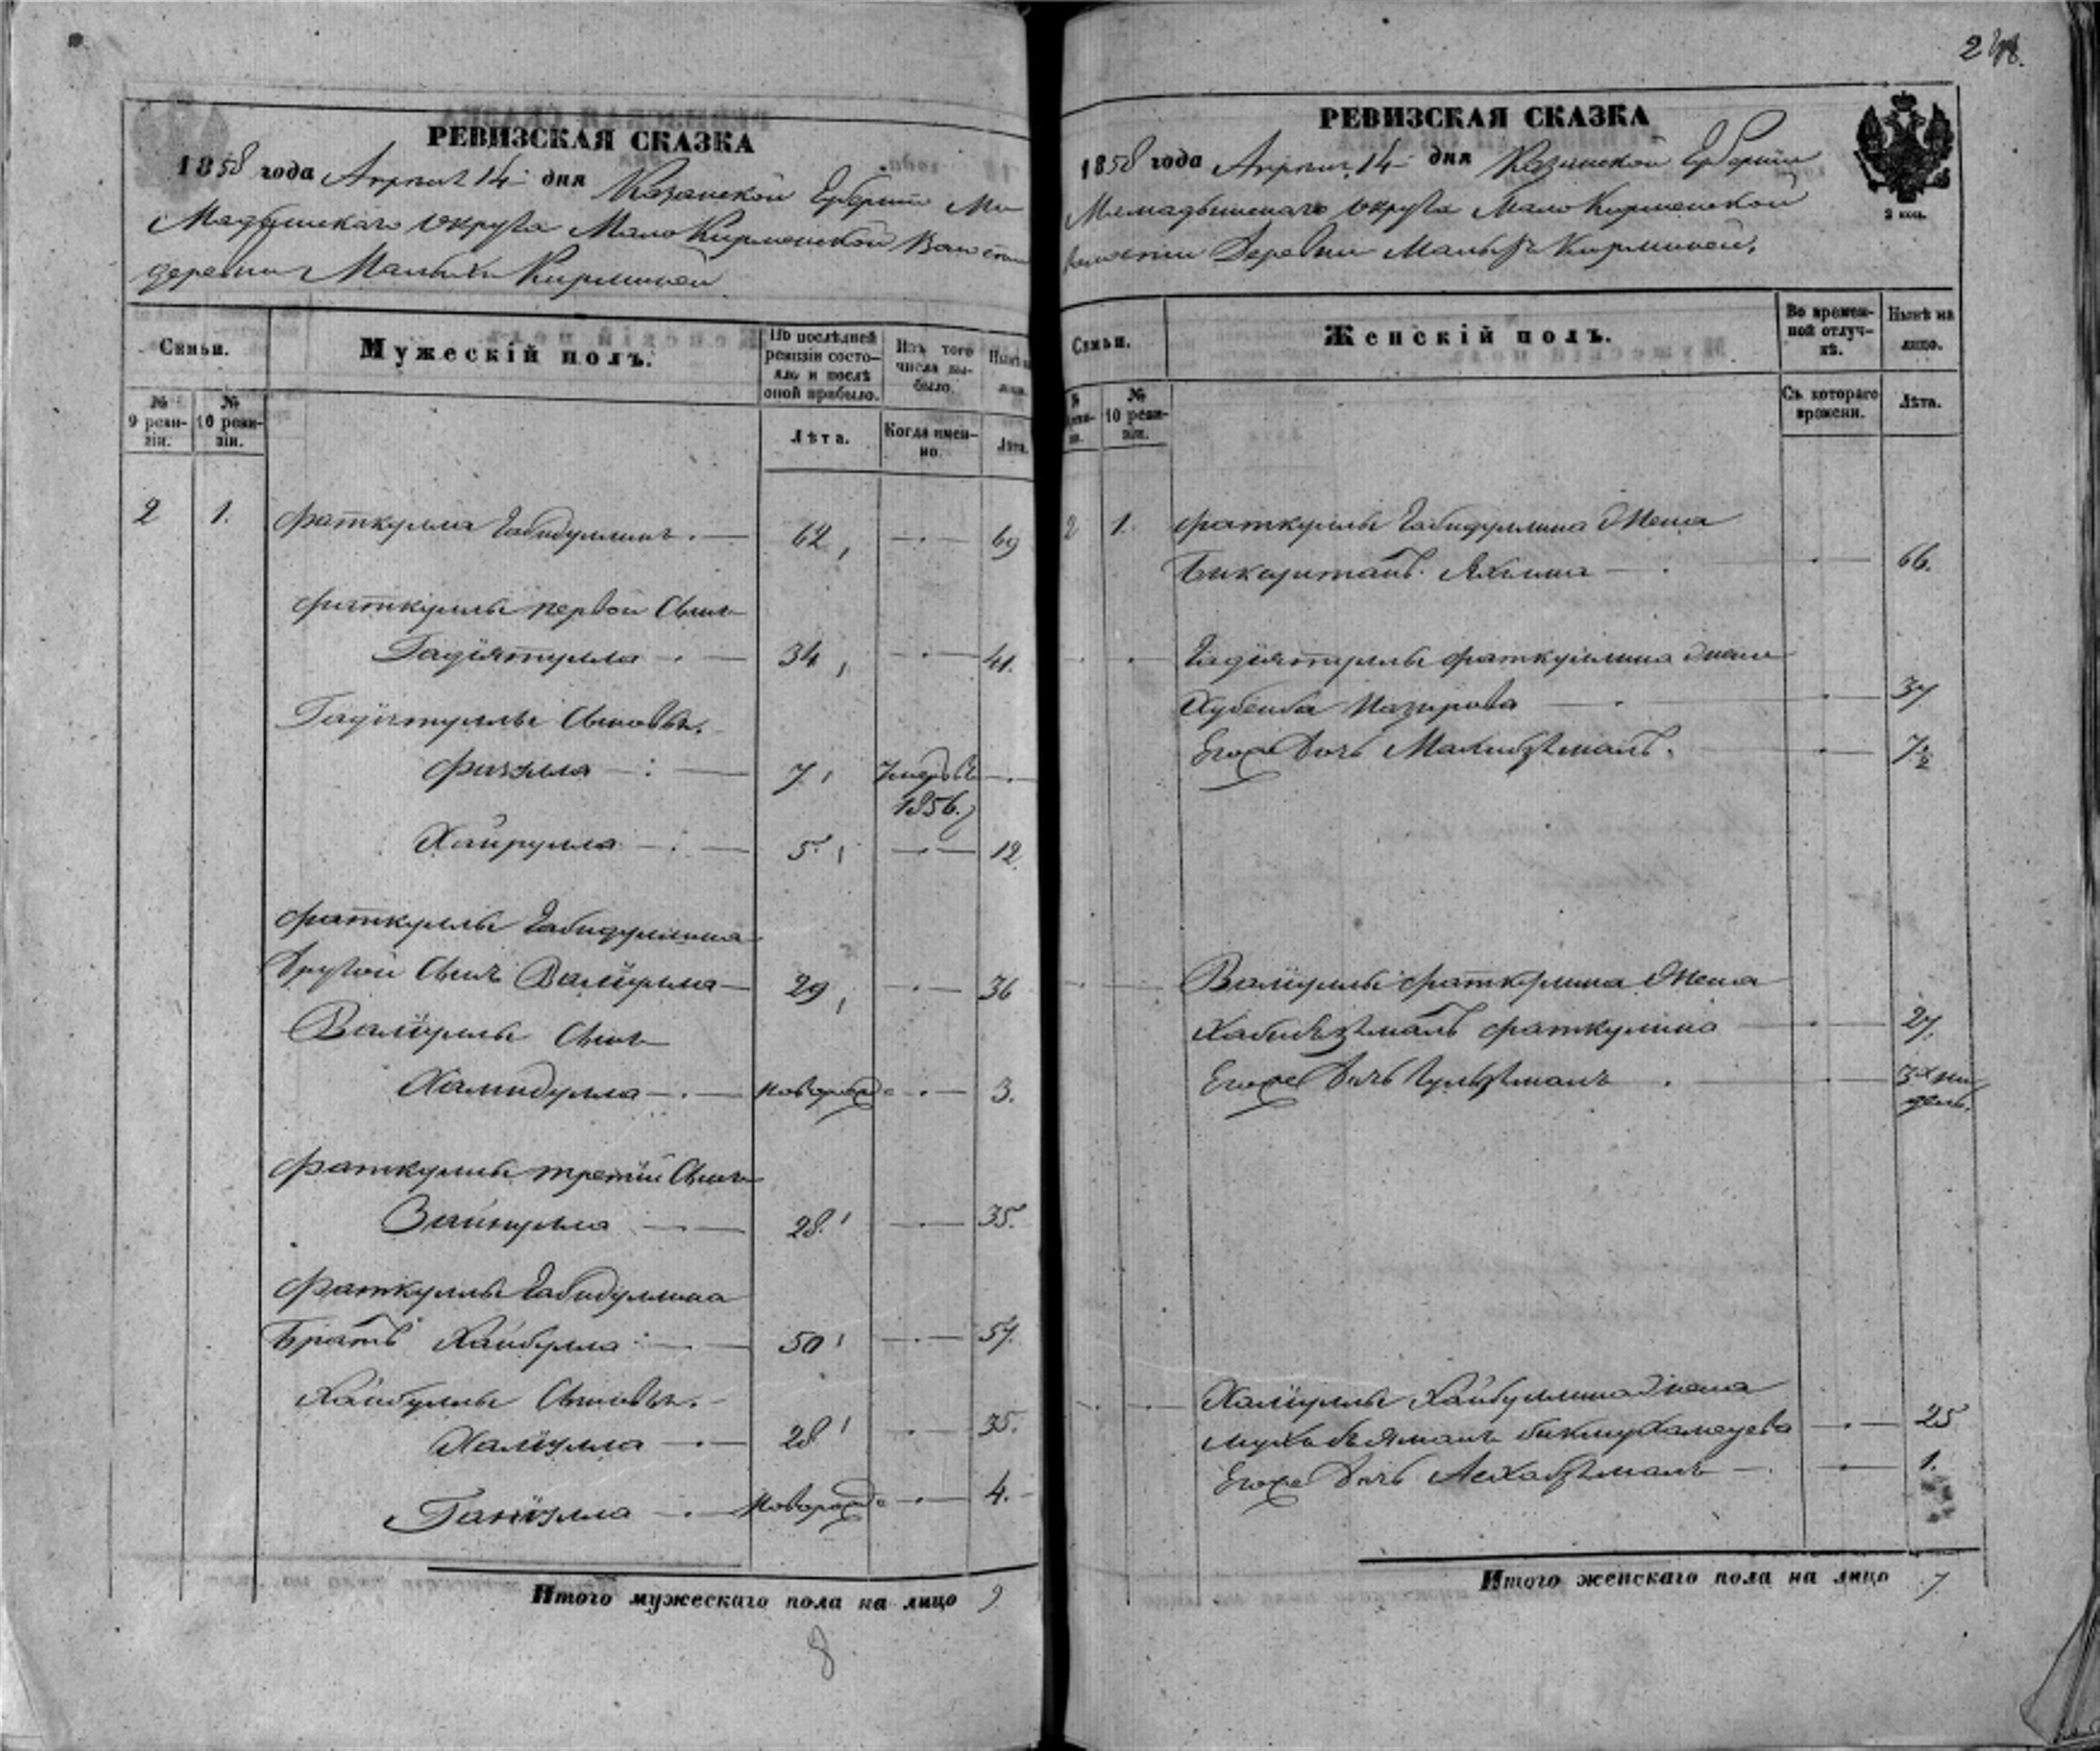 РЕВИЗСКАЯ СКАЗКА
1858 года Апреля 14 дня Казанской Губернiи Ма
Мадышскаго Округа Мало Кирменской Волости
деревни Малыхъ Кирменей
Семьи.
Мужескій полъ.
По послѣдней ревизіи состояло и послѣ оной прибыло.
Изъ того числа выбыло.
Нынѣ на лицо.
№ 9 ревизіи.
№ 10 ревизіи.
Лѣта.
Когда именно.
Лѣта.
2 1. Фаткулла Габидуллинъ. 62, 69
Фаткуллы первой Сынъ
Гадіятулла 34, 41.
Гадіятуллы Сыновья.
Физулла 7, Умеръ въ
1856.
Хайрулла 5, 12
Фаткуллы Габидуллина
другой Сынъ Валіулла 29, 36
Валіуллы Сынъ
Хамидулла новорожд 3.
Фаткуллы третій Сынъ
Зайнулла 28. 35.
Фаткуллы Габидуллина
Братъ Хайбулла 50 57.
Хайбуллы Сыновья.
Халіулла 28 35.
Ганіулла новорожд 4.
Итого мужескаго пола на лицо 9
8
РЕВИЗСКАЯ СКАЗКА
2 коп.
1858 года Апреля 14 дня Казанской Губерніи
Мамадышскаго Округа Мало Кирменской
волости Деревни Малыхъ Кирменей.
Семьи.
Женскій полъ.
Во временной отлучкѣ.
Нынѣ на лицо.
№ 10 ревизіи.
Съ котораго времени.
Лѣта.
2 1. Фаткуллы Габидуллина Жена
66.
Гадіятуллы Фаткуллина жена
Хубейба Назирова 37
Егоже Дочь 7 1/2
Валіуллы Фаткулина Жена
Фаткулина 27.
Егоже Дочь 3х не
дель.
Халіуллы Хайбуллина жена
Бикмухаметева 25
Егоже Дочь 1.
Итого женскаго пола на лицо 7